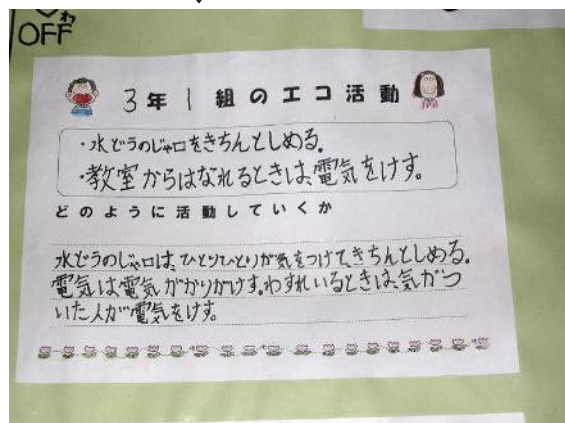 わ
OFF
3年1組のエコ活動
・水どうのじゃ口をきちんとしめる。
・教室からはなれるときは、電気をけす。
どのように活動していくか
水どうのじゃ口は、ひとりひとりが気をつけて、きちんとしめる。
電気は電気がかりがけす。わすれいるときは、気がつ
いた人が電気をけす。